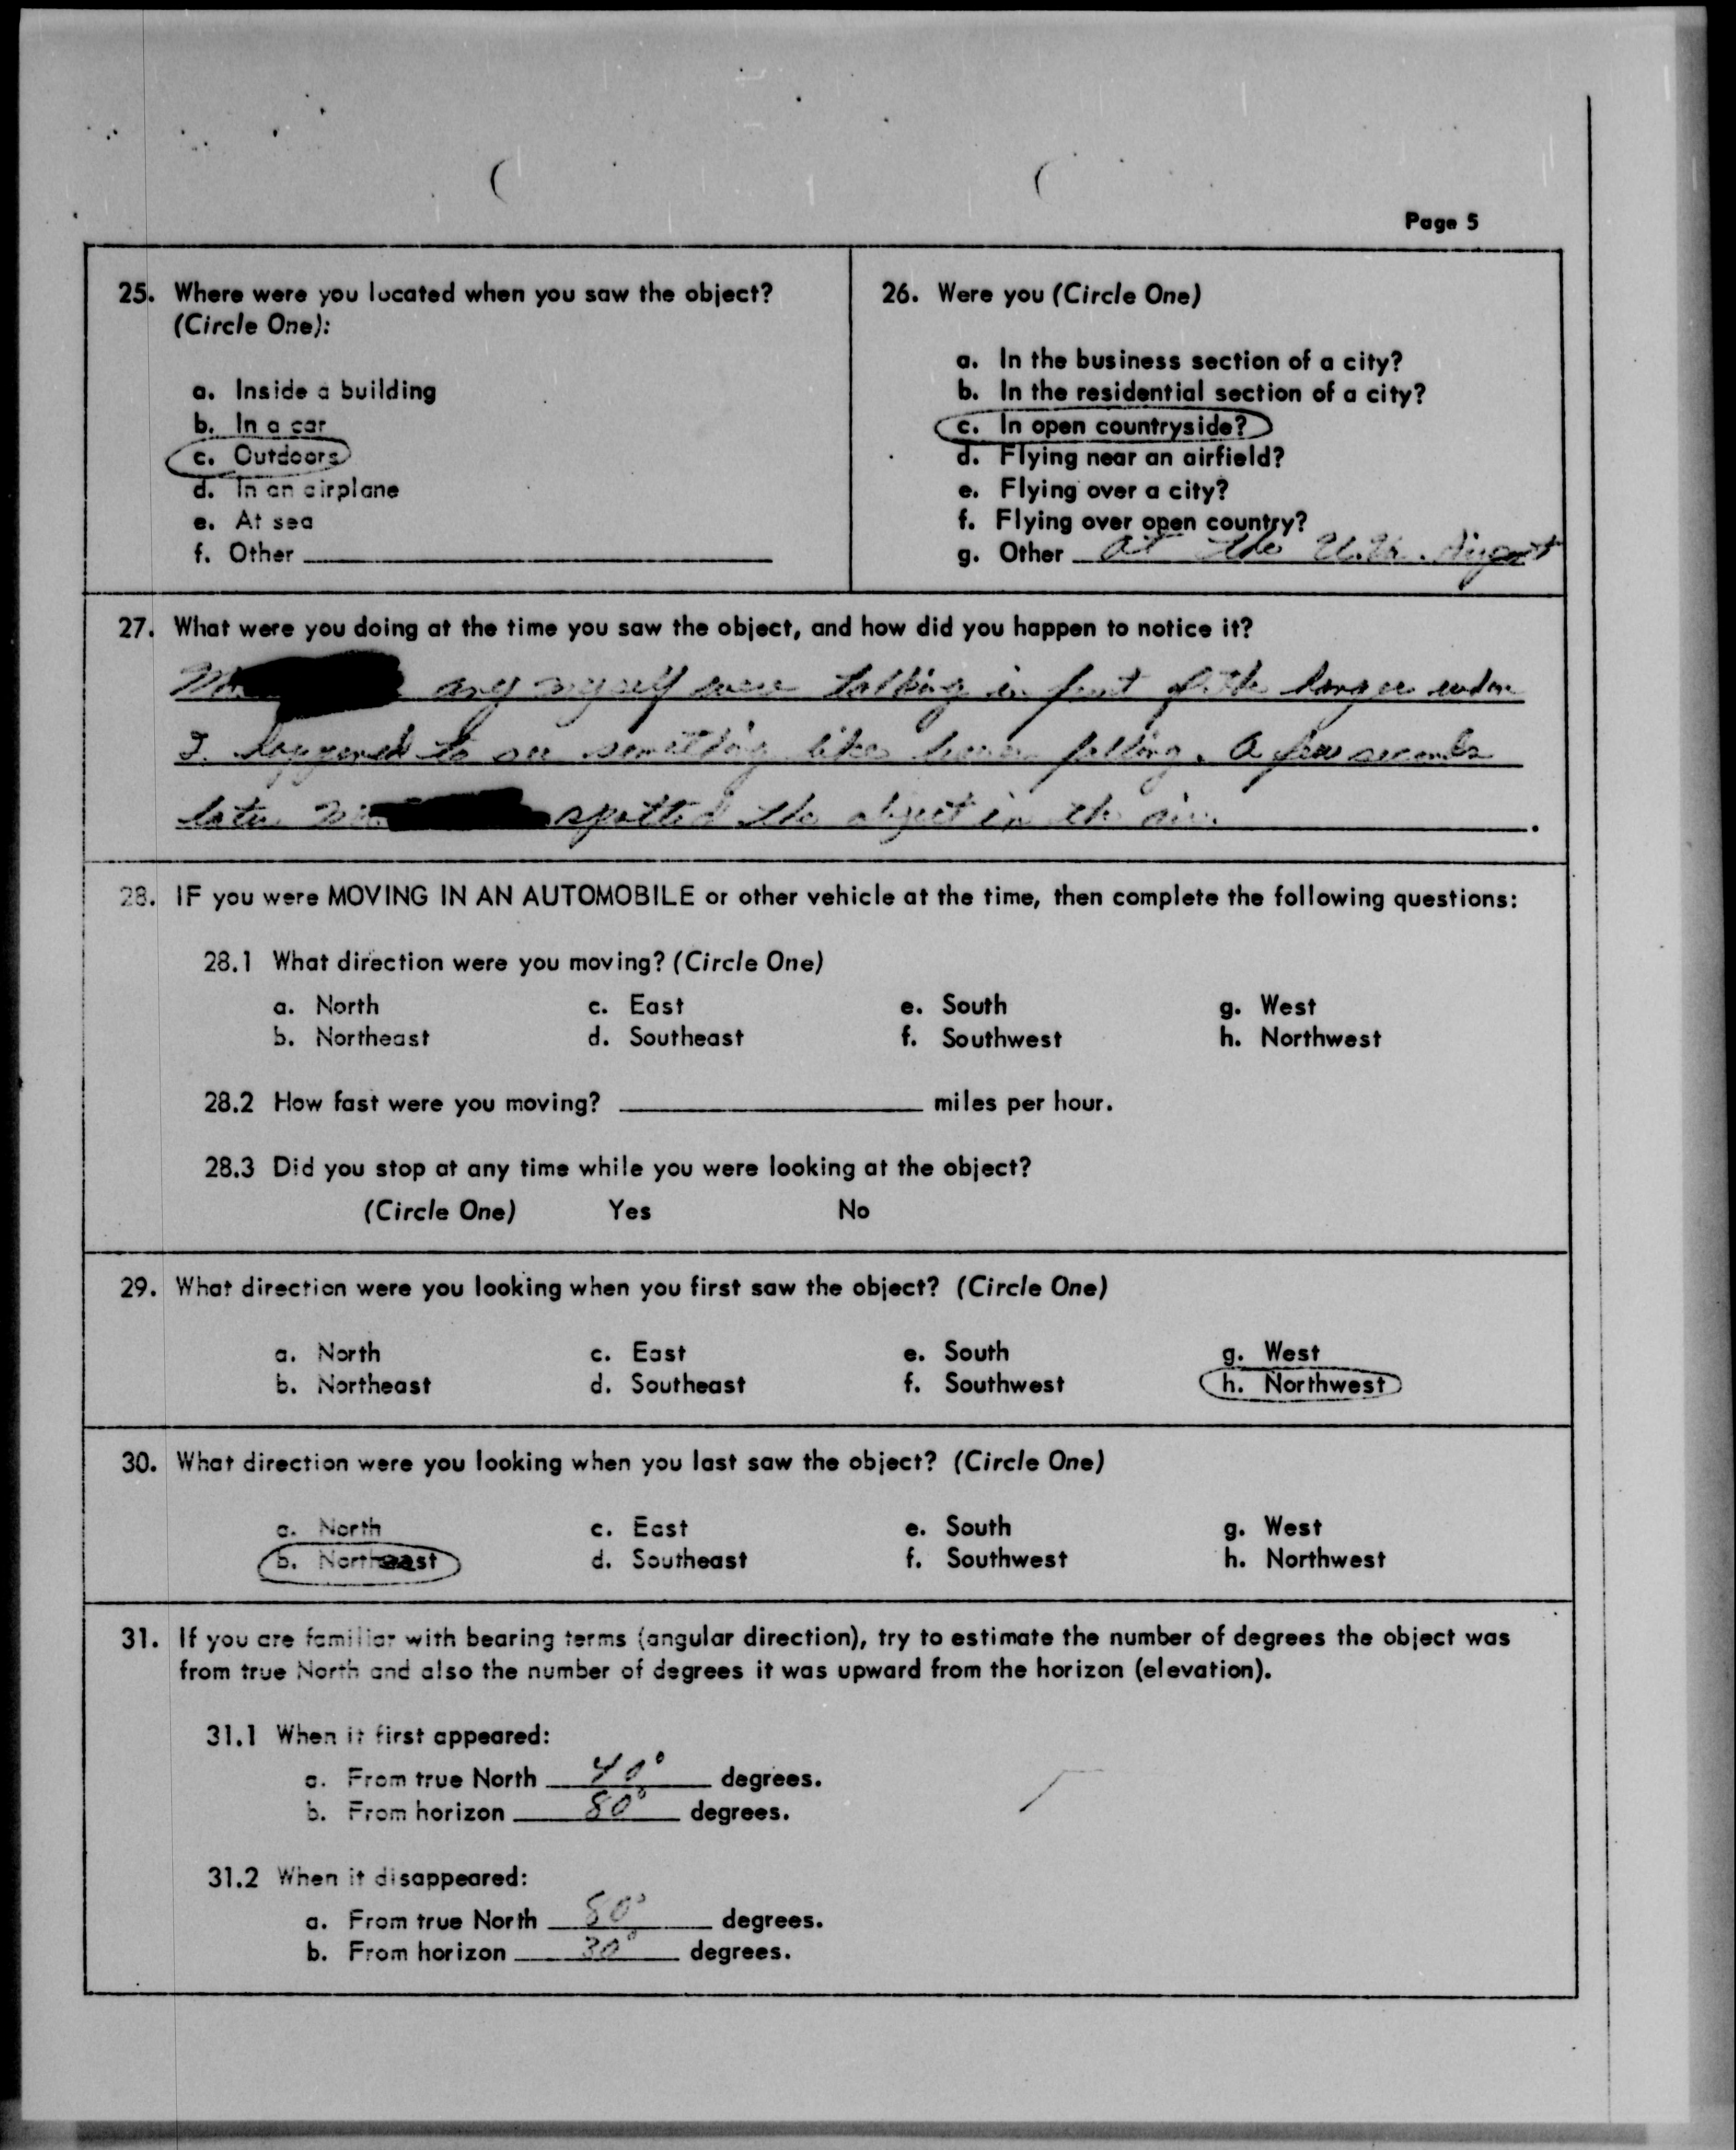 Page 5
25. Where were you located when you saw the object?
(Circle One):
a. Inside a building
b. In a car
c. Outdoors
d. In an airplane
e. At sea
f. Other
26. Were you (Circle One)
a. In the business section of a city?
b. In the residential section of a city?
c. In open countryside?
d. Flying near an airfield?
e. Flying over a city?
f. Flying over open country?
g. Other at the Airport
27. What were you doing at the time you saw the object, and how did you happen to notice it?
Mr. any myself were talking in front of the hanger when
I happened to see something like falling. A few seconds
later Mr. spotted the object in the air.
28. IF you were MOVING IN AN AUTOMOBILE or other vehicle at the time, then complete the following questions:
28.1 What direction were you moving? (Circle One)
a. North c. East e. South g. West
b. Northeast d. Southeast f. Southwest h. Northwest
28.2 How fast were you moving? miles per hour.
28.3 Did you stop at any time while you were looking at the object?
(Circle One) Yes No
29. What direction were you looking when you first saw the object? (Circle One)
a. North c. East e. South g. West
b. Northeast d. Southeast f. Southwest h. Northwest
30. What direction were you looking when you last saw the object? (Circle One)
a. North c. East e. South g. West
b. Northeast d. Southeast f. Southwest h. Northwest
31. If you are familiar with bearing terms (angular direction), try to estimate the number of degrees the object was
from true North and also the number of degrees it was upward from the horizon (elevation).
31.1 When it first appeared:
a. From true North 40° degrees.
b. From horizon 80° degrees.
31.2 When it disappeared:
a. From true North 80° degrees.
b. From horizon 30° degrees.